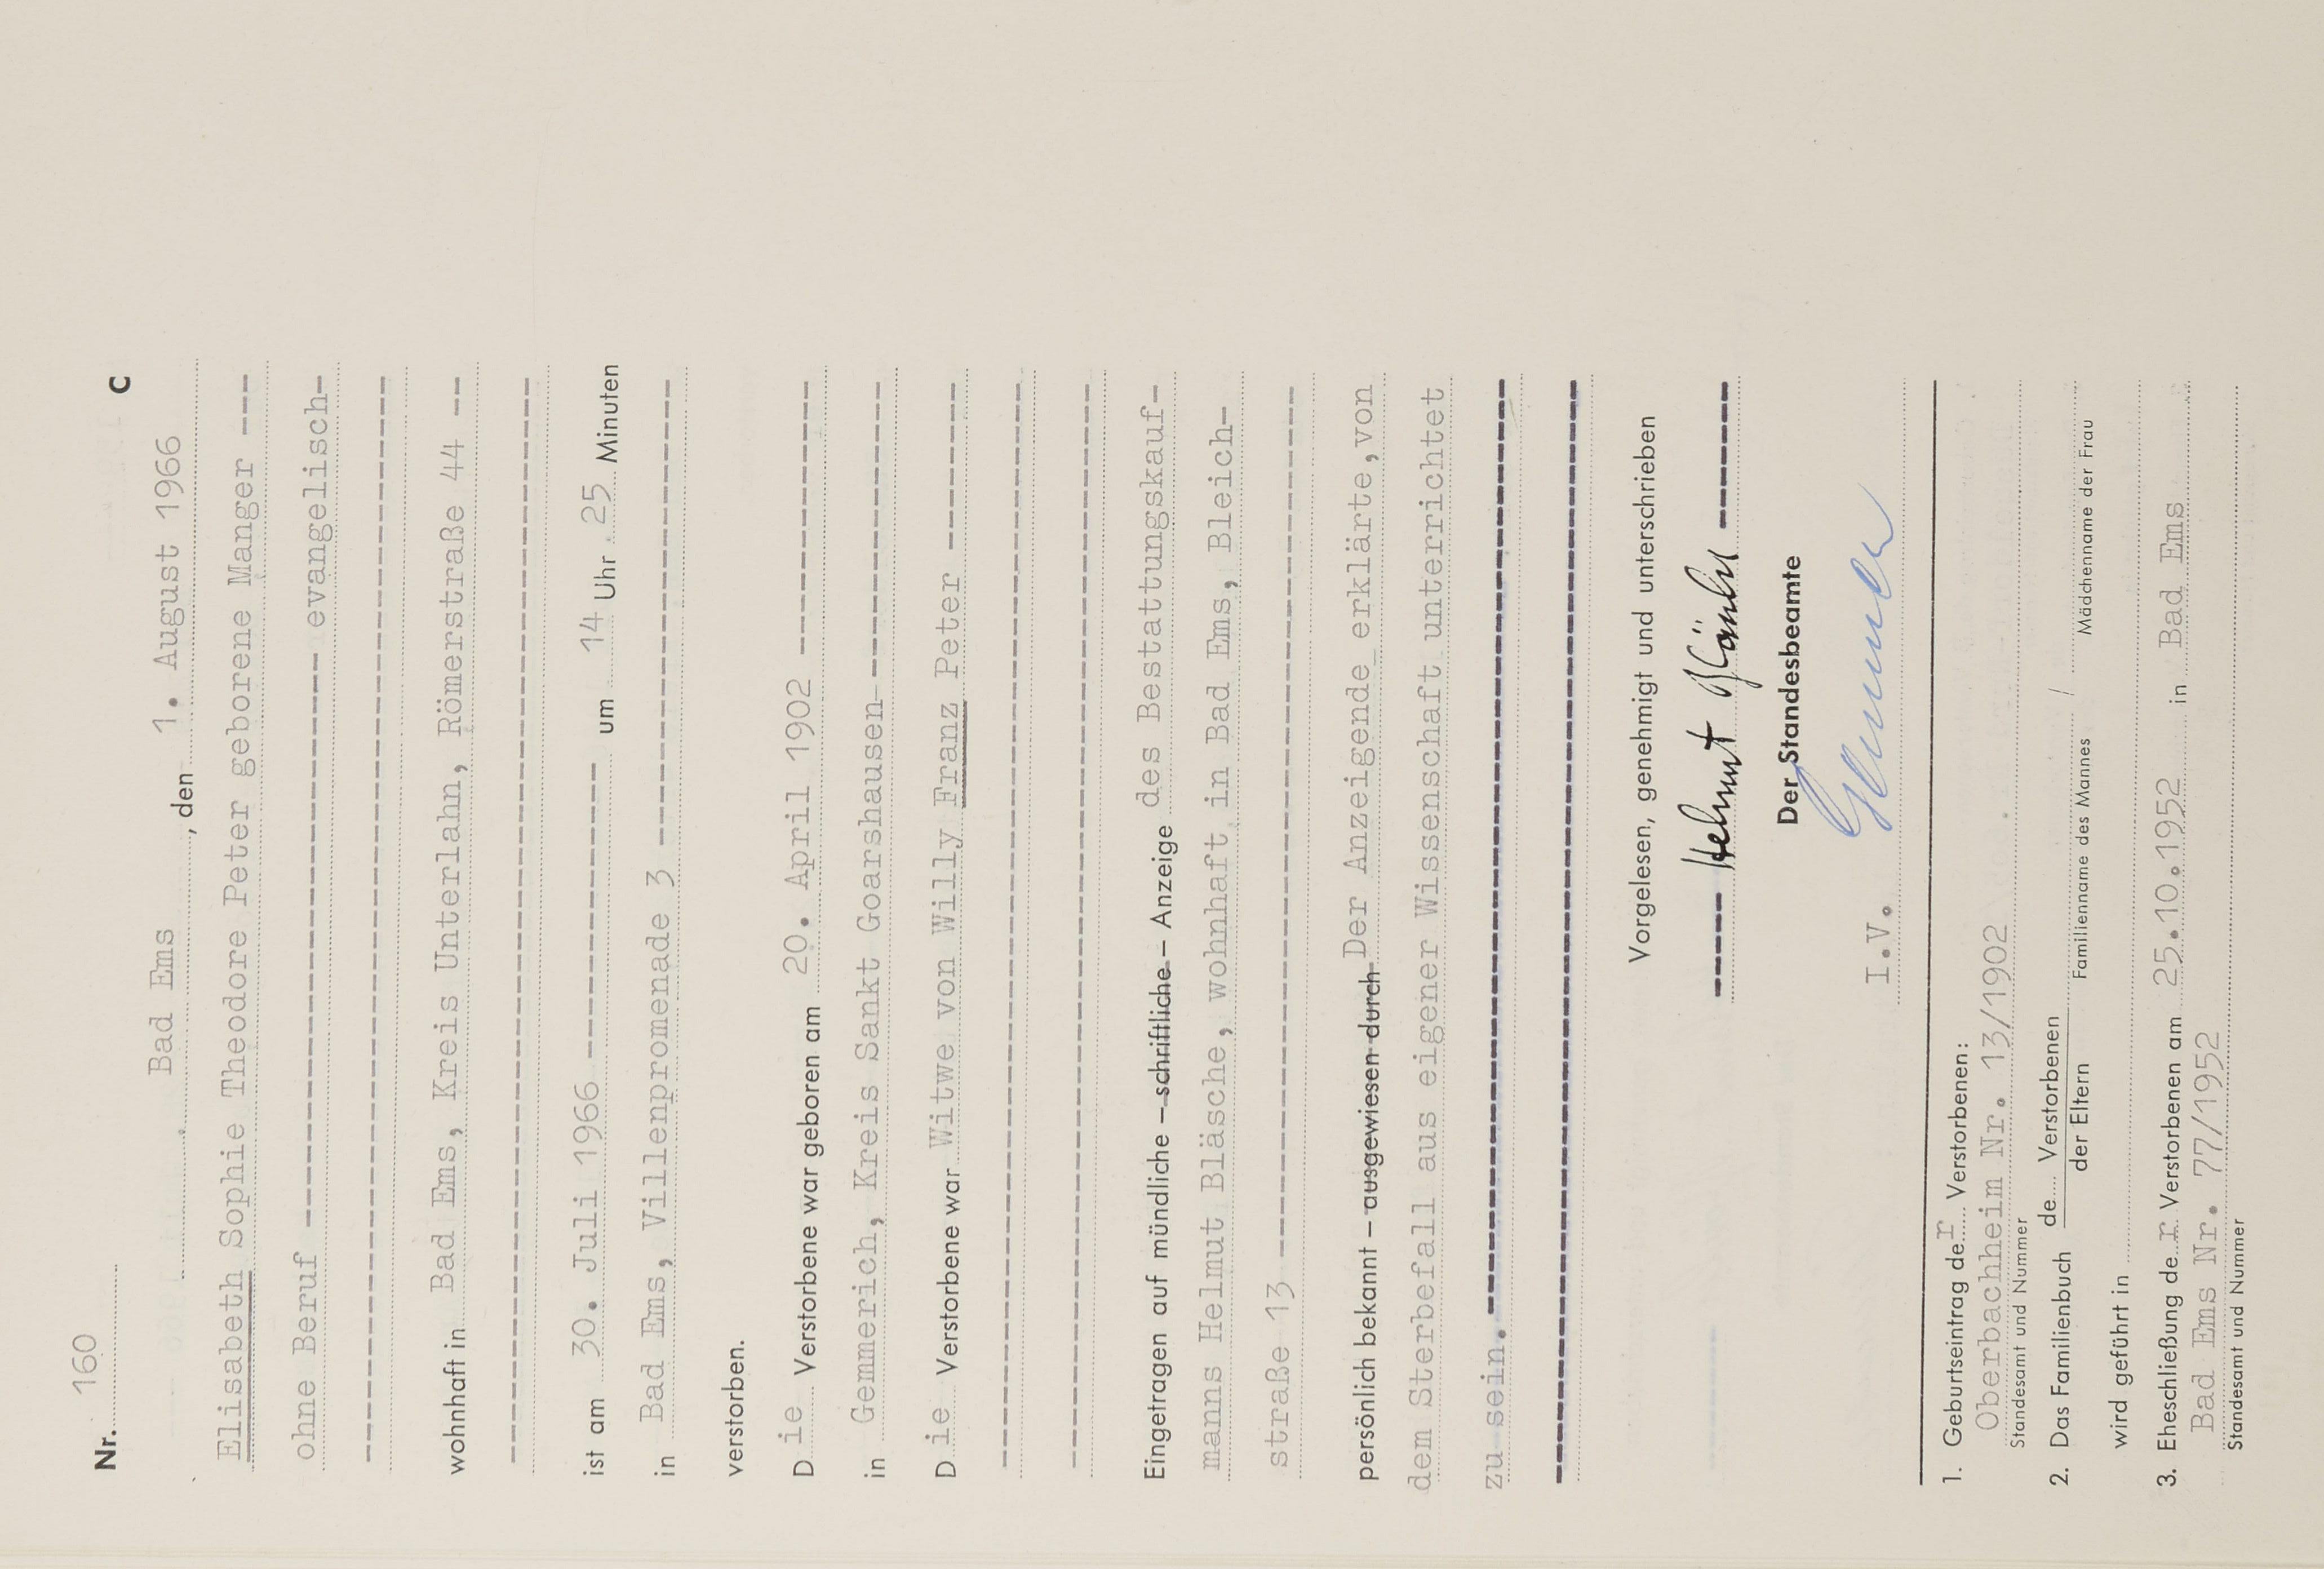 Nr. 160 C
Bad Ems , den 1. August 1966
Elisabeth Sophie Theodore Peter geborene Manger ---
ohne Beruf ------------------------ evangelisch-
------------------------------------------------
wohnhaft in Bad Ems, Kreis Unterlahn, Römerstraße 44 --
------------------------------------------------
ist am 30. Juli 1966 ------------- um 14 Uhr 25 Minuten
in Bad Ems, Villenpromenade 3 --------------------
verstorben.
Die Verstorbene war geboren am 20. April 1902 ------------
in Gemmerich, Kreis Sankt Goarshausen-------------
Die Verstorbene war Witwe von Willy Franz Peter --------
------------------------------------------------
------------------------------------------------
Eingetragen auf mündliche – schriftliche – Anzeige des Bestattungskauf-
manns Helmut Bläsche, wohnhaft in Bad Ems, Bleich-
straße 13 --------------------------------------
persönlich bekannt – ausgewiesen durch Der Anzeigende erklärte,von
dem Sterbefall aus eigener Wissenschaft unterrichtet
zu sein.----------------------------------------
------------------------------------------------
Vorgelesen, genehmigt und unterschrieben
----- Helmut Bläsche -------
Der Standesbeamte
I.V.
1. Geburtseintrag der Verstorbenen:
Oberbachheim Nr. 13/1902
Standesamt und Nummer
2. Das Familienbuch de Verstorbenen /
der Eltern Familienname des Mannes Mädchenname der Frau
wird geführt in
3. Eheschließung der Verstorbenen am 25.10.1952 in Bad Ems
Bad Ems Nr. 77/1952
Standesamt und Nummer